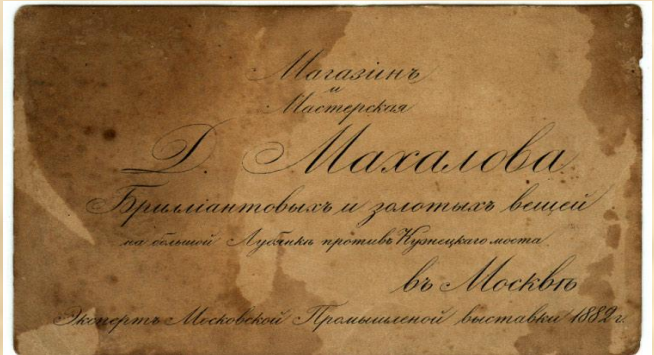 Магазинъ
и
Мастерская
Д. Махалова
Брилліантовыхъ и золотыхъ вещей
на большой Лубянкѣ противъ Кузнецкаго моста
въ Москвѣ
Экспертъ Московской Промышленой выставки 1882 г.